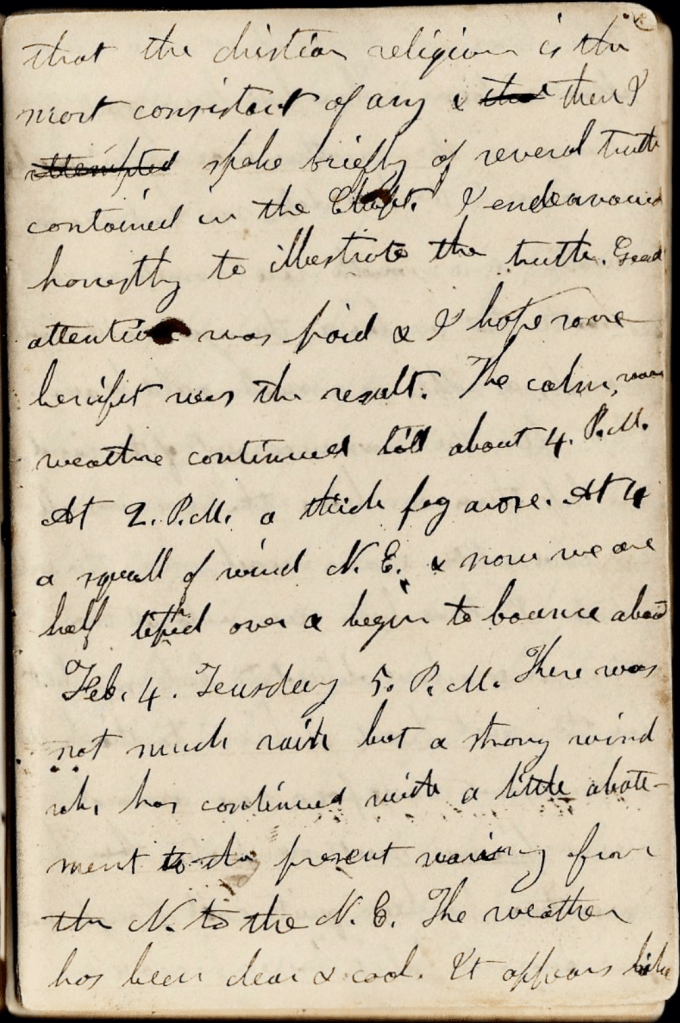 that the christian religion is the
most consistant of any & that then I
attempted spoke briefly of several truths
contained in the Chapt. I endeavoured
honestly to illustrate the truth. Good
attention was paid & I hope some
benifit was the result. The calm, warm
weather continued till about 4. P.M.
At 2. P.M. a thick fog arose. At 4
a squall of wind N. E. & now we are
half tiped over & begin to bounce about
Feb. 4. Teusday 5. P.M. There was
not much rain but a strong wind
wh. has continued with a little abate-
ment to the present variing from
the N. to the N. E. The weather
has been clear & cool. It appears like